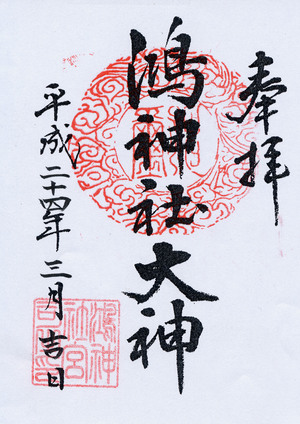 奉拝
鴻神社大神
平成二十四年三月吉日
鴻神
社宮
司印